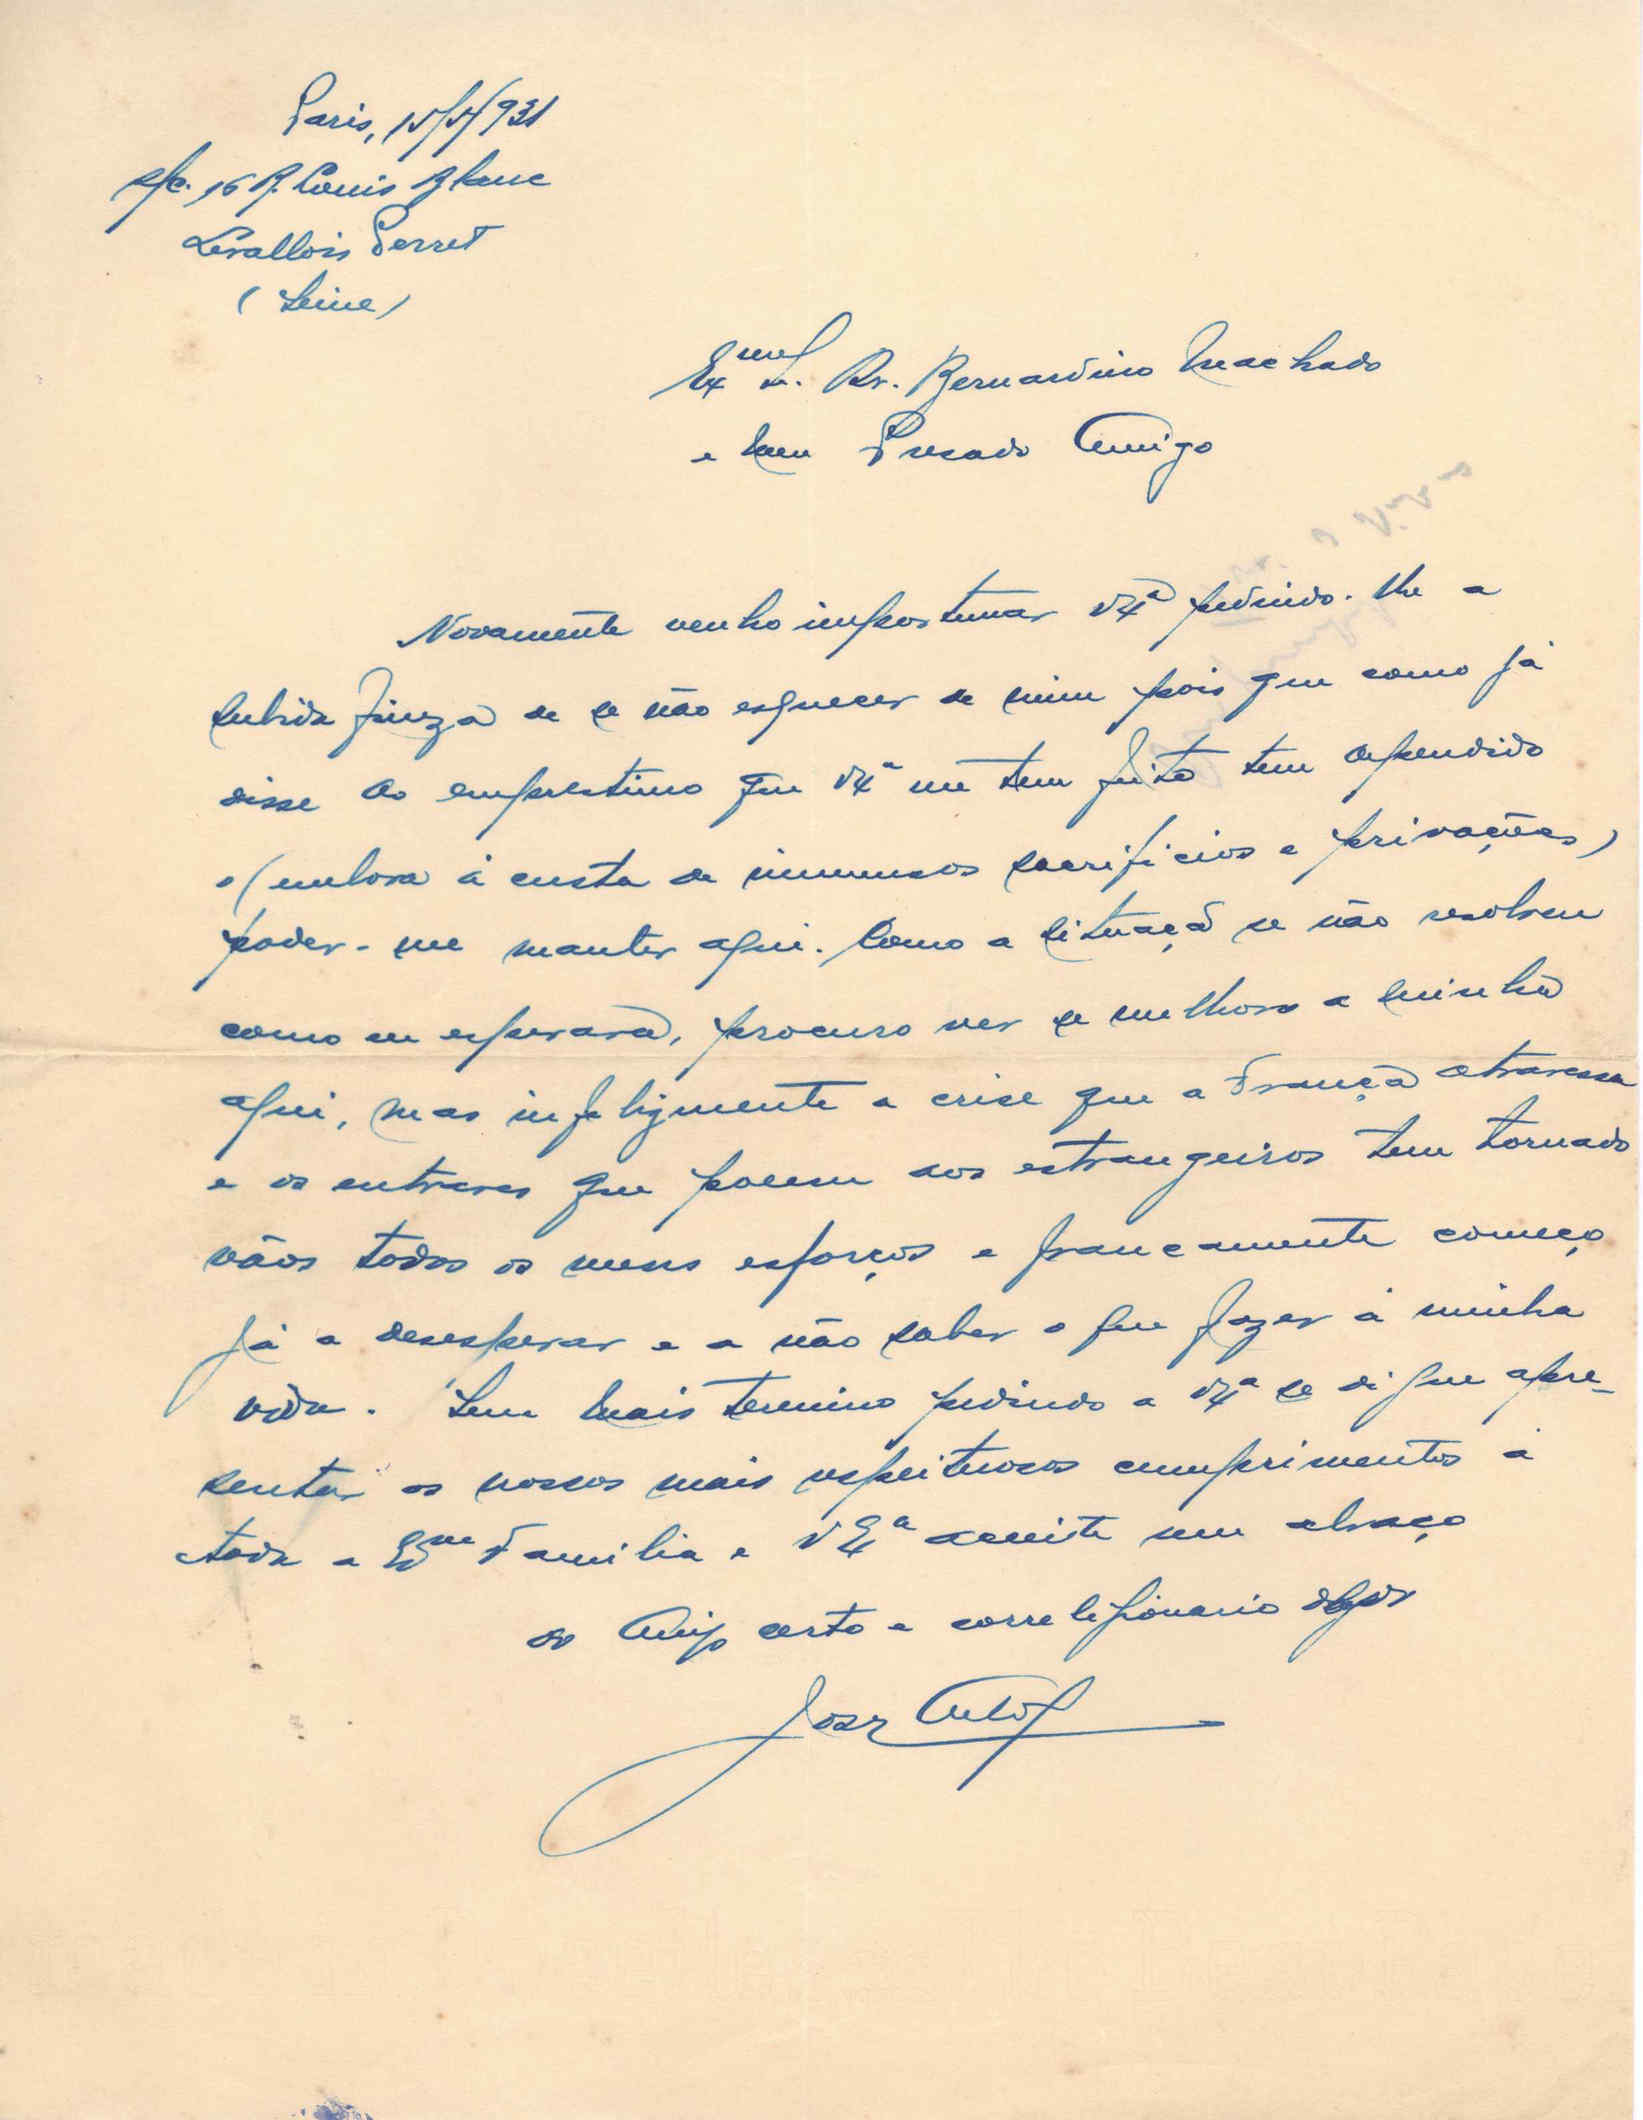 Paris, 15/5/931
s/c. 16 R. Louis Blanc
Levallois Perret
(Seine)
Exmo S. Dr. Bernardino Machado
e meu Presado Amigo
Novamente venho importunar VExª pedindo-lhe a
subida fineza de se não esquecer de mim pois que como já
disse do emprestimo que VExª me tem feito tem dependido
o (embora á custa de immensos sacrificios e privações)
poder-me manter aqui. Como a situaçã se não resolveu
como eu esperava, procuro ver se melhoro a minha
aqui, mas infelizmente a crise que a França atravessa
e os entraves que poem aos estrangeiros tem tornado
vãos todos os meus esforços e francamente começo
já a desesperar e a não saber o que fazer á minha
vida. Sem mais termino pedindo a VExª se digne apre-
sentar os nossos mais respeitosos cumprimentos á
toda a Exma Familia e VExª acceite um abraço
do Amigo certo e correligionario obgdo
José